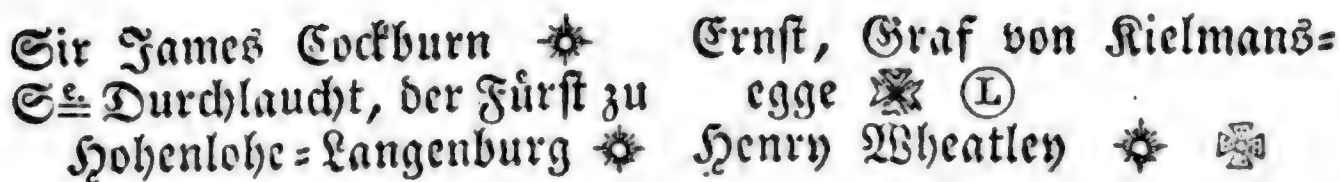 Sir James Cockburn
Se. Durchlaucht, der Fürst zu
Hohenlohe=Langenburg
Ernst, Graf von Kielmans=
egge Ⓛ
Henry Wheatley